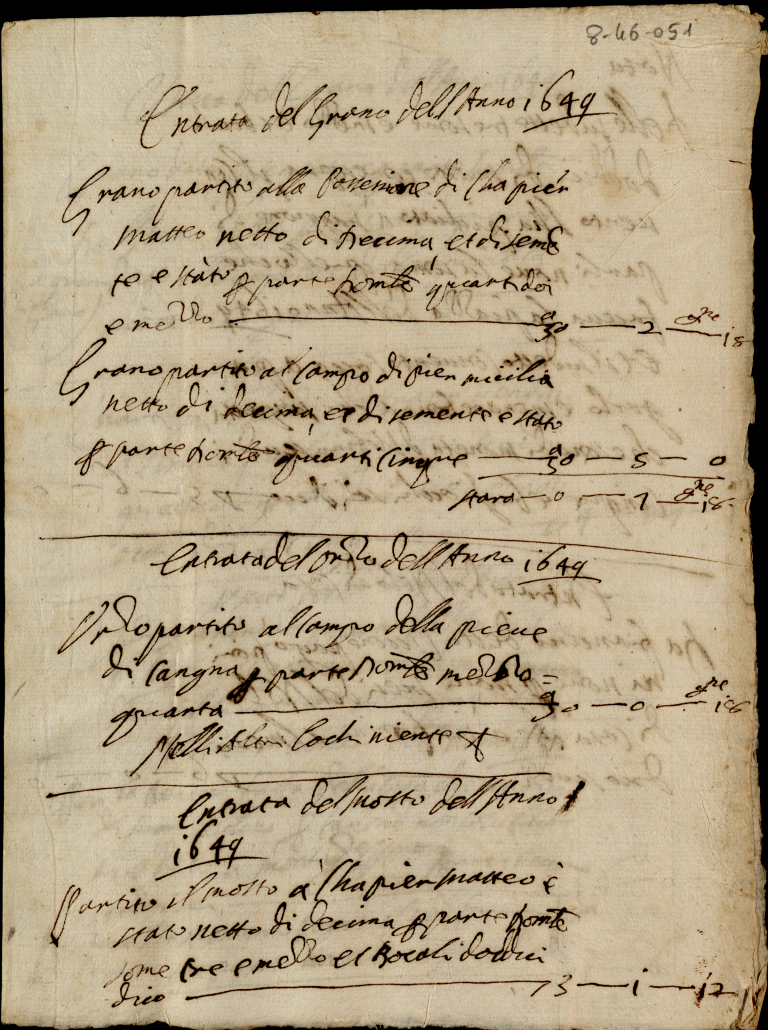 8-46-051
Entrata del Grano dell Anno 1649
Grano partito alla Possessione di Cha pier
Matteo netto di decima, et di semē
te e stàto p parte quarti doi
e mezzo 0 — 2 — 18
Grano partito al campo di pier
netto di decima, et di semente e stato
p parte quarti cinque 0 — 5 — 0
stara — 0 — 7 — 18
Entrata del orzo dell Anno 1649
Orzo partito al campo della pieve
di Cangna p parte mezzo =
quarta 0 — 0 — 18
Nelli Altri lochi niente
Entrata del mosto dell Anno
1649
Partito il mosto à Cha pier Matteo è
stato netto di decima p parte
some tre e mezzo et Bocali dodici
dico 3 — 1 — 12